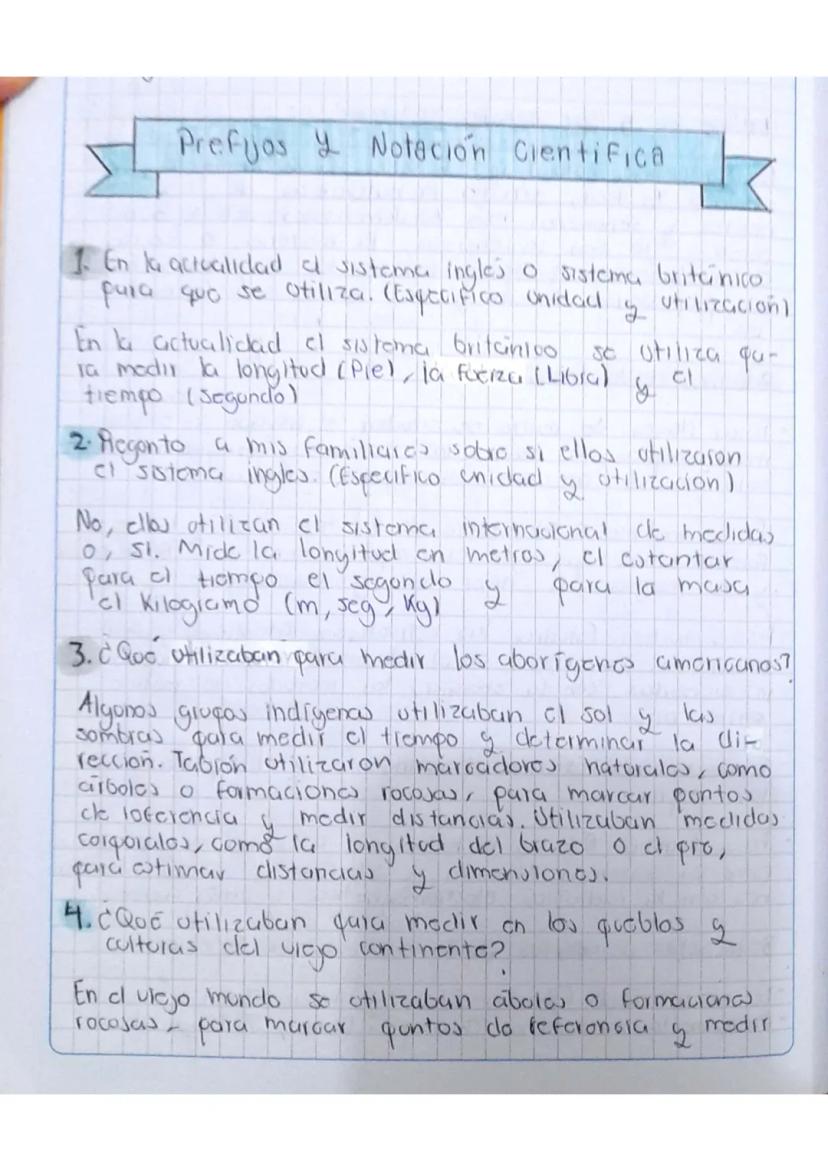 Prefijos y Notación Cientifica
1. En la actualidad el sistema inglés o sistema británico
para que se utiliza. (Específico unidad y utilización)
En la actualidad el sistema británico se utiliza pa-
ra medir la longitud (Pie), la fuerza (Libra) y el
tiempo (segundo)
2. Pregonto a mis familiares sobre si ellos utilizaron
el sistema ingles. (Especifico unidad y utilizacion)
No, ellos utilizan el sistema internacional de medidas
o, si. Mide la longitud en metros, el
para el tiempo el segundo y para la masa
el Kilogramo (m, seg, Kg)
3. ¿Qué utilizaban para medir los aborígenes americanos?
Algunos grupos indígenas utilizaban el sol y las
sombras para medir el tiempo y determinar la di-
rección. Tabién utilizaron marcadores naturales, como
árboles o formaciones rocosas, para marcar puntos
de referencia y medir distancias. Utilizaban medidas
corporales, como la longitud del brazo o el pie,
para estimar distancias y dimensiones.
4. ¿Qué utilizaban para medir en los pueblos y
culturas del viejo continente?
En el viejo mundo se utilizaban áboles o formaciones
rocosas, para marcar puntos de referencia y medir